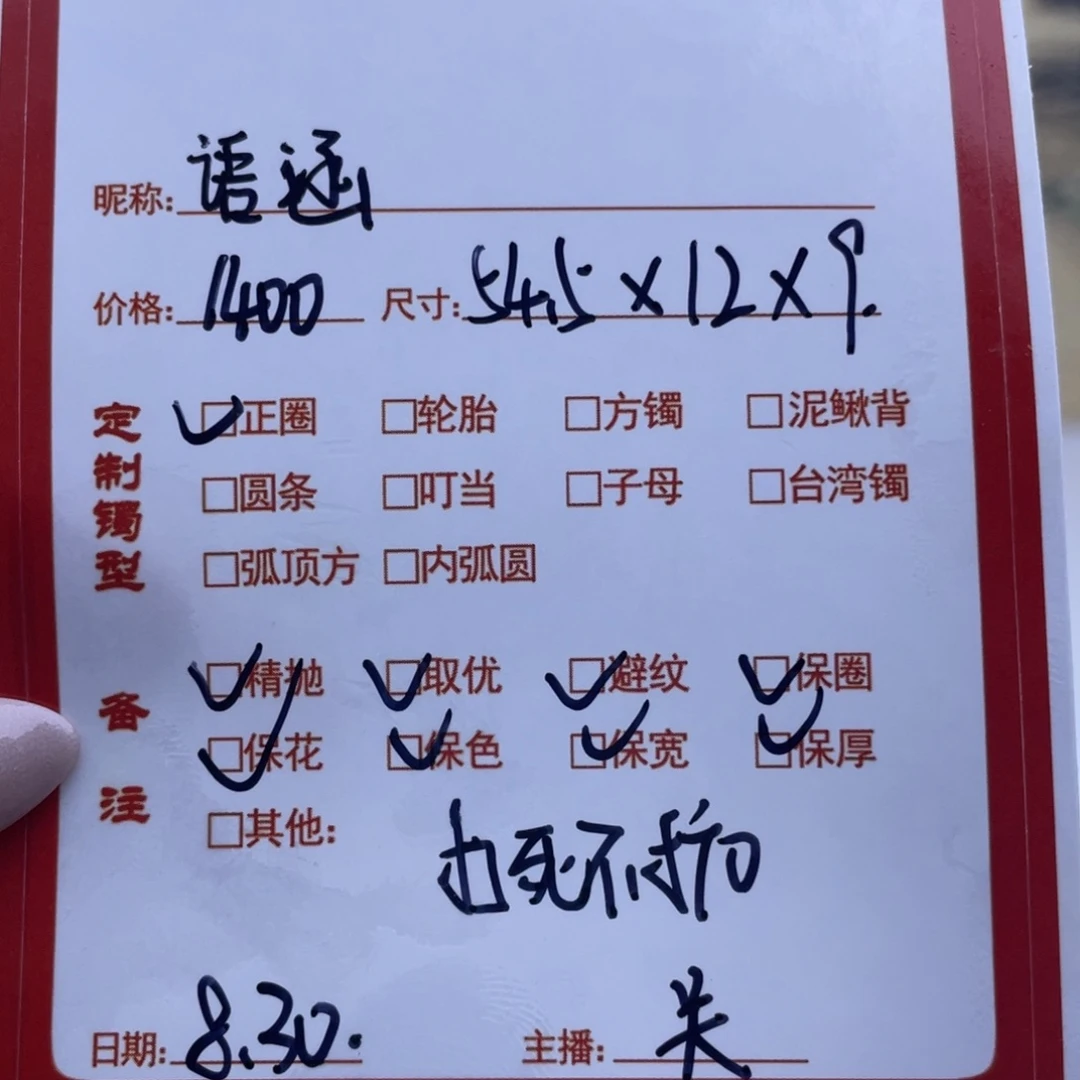 昵称: 语涵
价格: 1400 尺寸: 54.5×12×9.
定制镯型
✓正圈 □轮胎 □方镯 □泥鳅背
□圆条 □叮当 □子母 □台湾镯
□弧顶方 □内弧圆
备注
✓精抛 ✓取优 ✓避纹 ✓保圈
✓保花 ✓保色 ✓保宽 ✓保厚
□其他:
打死不拆
日期: 8.30. 主播: